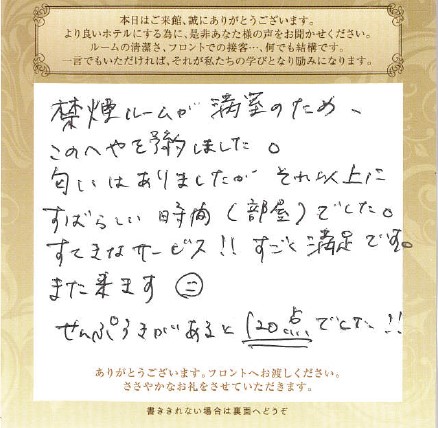 本日はご来館、誠にありがとうございます。
より良いホテルにする為に、是非あなた様の声をお聞かせください。
ルームの清潔さ、フロントでの接客…、何でも結構です。
一言でもいただければ、それが私たちの学びとなり励みになります。
禁煙ルームが満室のため、
このへやを予約しました。
匂いはありましたが それ以上に
すばらしい時間(部屋)でした。
すてきなサービス!! すごく満足です。
また来ます
せんぷうきがあると120点でした!!
ありがとうございます。フロントへお渡しください。
ささやかなお礼をさせていただきます。
書ききれない場合は裏面へどうぞ